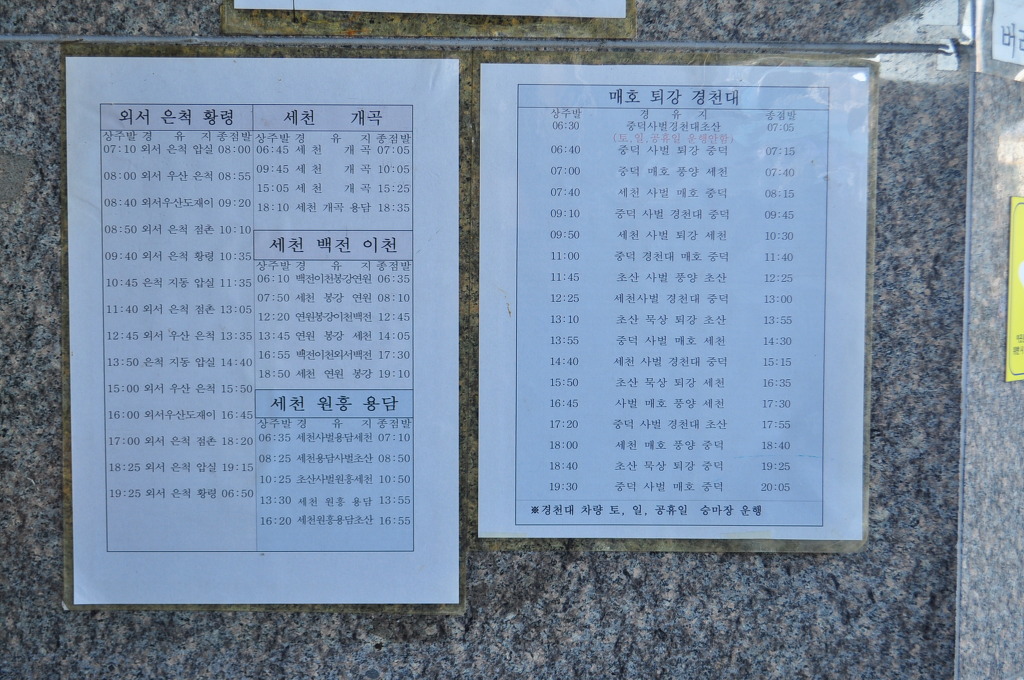 외서 은척 황령
상주발 경 유 지 종점발
07:10 외서 은척 압실 08:00
08:00 외서 우산 은척 08:55
08:40 외서우산도재이 09:20
08:50 외서 은척 점촌 10:10
09:40 외서 은척 황령 10:35
10:45 은척 지동 압실 11:35
11:40 외서 은척 점촌 13:05
12:45 외서 우산 은척 13:35
13:50 은척 지동 압실 14:40
15:00 외서 우산 은척 15:50
16:00 외서우산도재이 16:45
17:00 외서 은척 점촌 18:20
18:25 외서 은척 압실 19:15
19:25 외서 은척 황령 06:50
세천 개곡
상주발 경 유 지 종점발
06:45 세 천 개 곡 07:05
09:45 세 천 개 곡 10:05
15:05 세 천 개 곡 15:25
18:10 세천 개곡 용담 18:35
세천 백전 이천
상주발 경 유 지 종점발
06:10 백전이천봉강연원 06:35
07:50 세천 봉강 연원 08:10
12:20 연원봉강이천백전 12:45
13:45 연원 봉강 세천 14:05
16:55 백전이천외서백전 17:30
18:50 세천 연원 봉강 19:10
세천 원흥 용담
상주발 경 유 지 종점발
06:35 세천사벌용담세천 07:10
08:25 세천용담사벌초산 08:50
10:25 초산사벌원흥세천 10:50
13:30 세천 원흥 용담 13:55
16:20 세천원흥용담초산 16:55
매호 퇴강 경천대
상주발 경 유 지 종점발
06:30 중덕사벌경천대초산 07:05
(토,일,공휴일 운행안함)
06:40 중덕 사벌 퇴강 중덕 07:15
07:00 중덕 매호 풍양 세천 07:40
07:40 세천 사벌 매호 중덕 08:15
09:10 중덕 사벌 경천대 중덕 09:45
09:50 세천 사벌 퇴강 세천 10:30
11:00 중덕 경천대 매호 중덕 11:40
11:45 초산 사벌 풍양 초산 12:25
12:25 세천사벌 경천대 중덕 13:00
13:10 초산 묵상 퇴강 초산 13:55
13:55 중덕 사벌 매호 세천 14:30
14:40 세천 사벌 경천대 중덕 15:15
15:50 초산 묵상 퇴강 세천 16:35
16:45 사벌 매호 풍양 세천 17:30
17:20 중덕 사벌 경천대 초산 17:55
18:00 세천 매호 풍양 중덕 18:40
18:40 초산 묵상 퇴강 중덕 19:25
19:30 중덕 사벌 매호 중덕 20:05
※경천대 차량 토, 일, 공휴일 승마장 운행